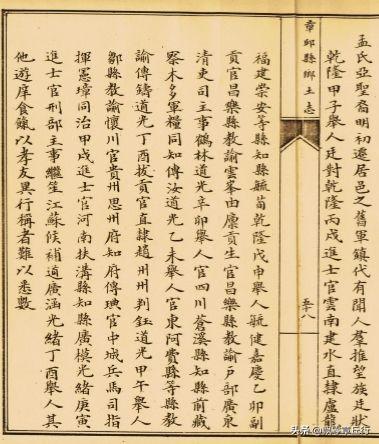 孟氏亞聖裔明初遷居邑之舊軍鎮代有聞人羣推望族廷狀
乾隆甲子舉人廷對乾隆丙戌進士官雲南建水直隸廬龍
章邱縣鄉土志
五十八
福建崇安等縣知縣毓苗乾隆戊申舉人毓健嘉慶乙卯副
貢官昌樂縣教諭雲峯由廩貢生官昌樂縣教諭戶部廣東
清吏司主事鶴林道光辛卯舉人官四川蒼溪縣知縣前藏
察木多軍糧同知傳汝道光乙未舉人官東阿費縣等縣教
諭傳鑄道光丁酉拔貢官直隸趙州州判鈺道光甲午舉人
鄒縣教諭懷川官貴州思州府知府傳璵官中城兵馬司指
揮憲璋同治甲戌進士官河南扶溝縣知縣廣模光緒庚寅
進士官刑部主事繼笙江蘇候補道廣涵光緒丁酉舉人其
他遊庠食餼以孝友異行稱者難以悉數